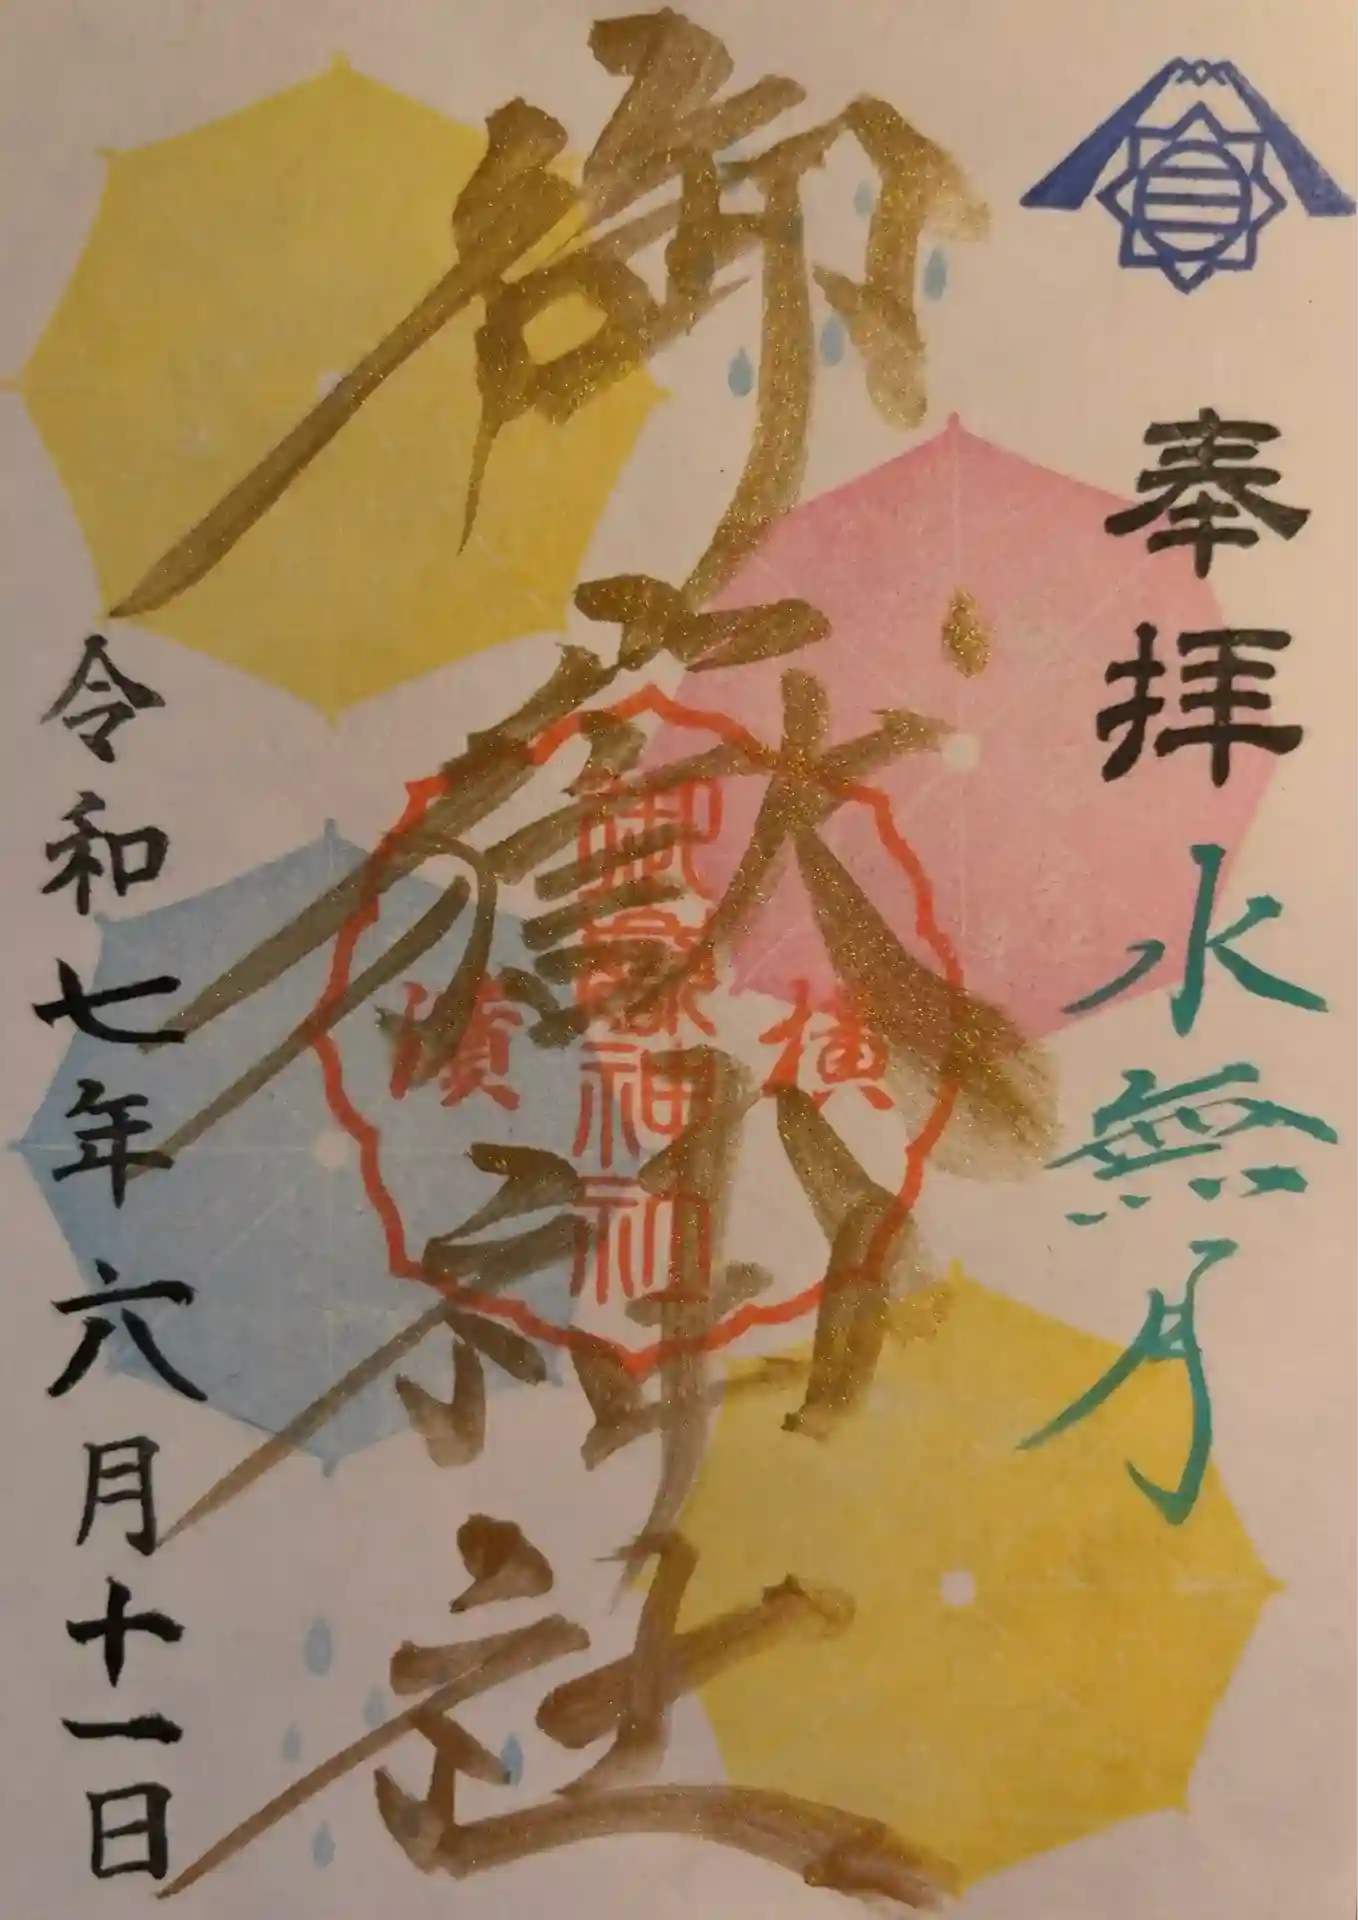 奉拝
水無月
御嶽神社
横
御嶽神社
濱
令和七年六月十一日